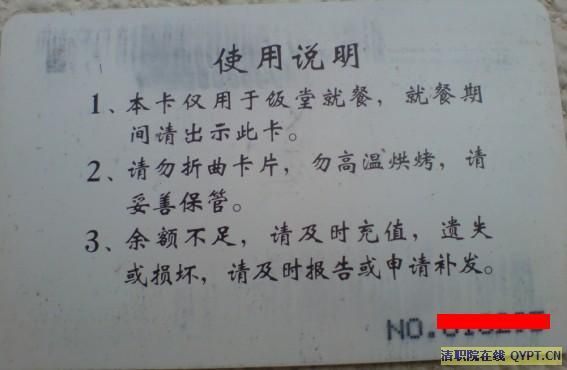 使用说明
1、本卡仅用于饭堂就餐，就餐期
间请出示此卡。
2、请勿折曲卡片，勿高温烘烤，请
妥善保管。
3、余额不足，请及时充值，遗失
或损坏，请及时报告或申请补发。
NO.
清职院在线 QYPT.CN